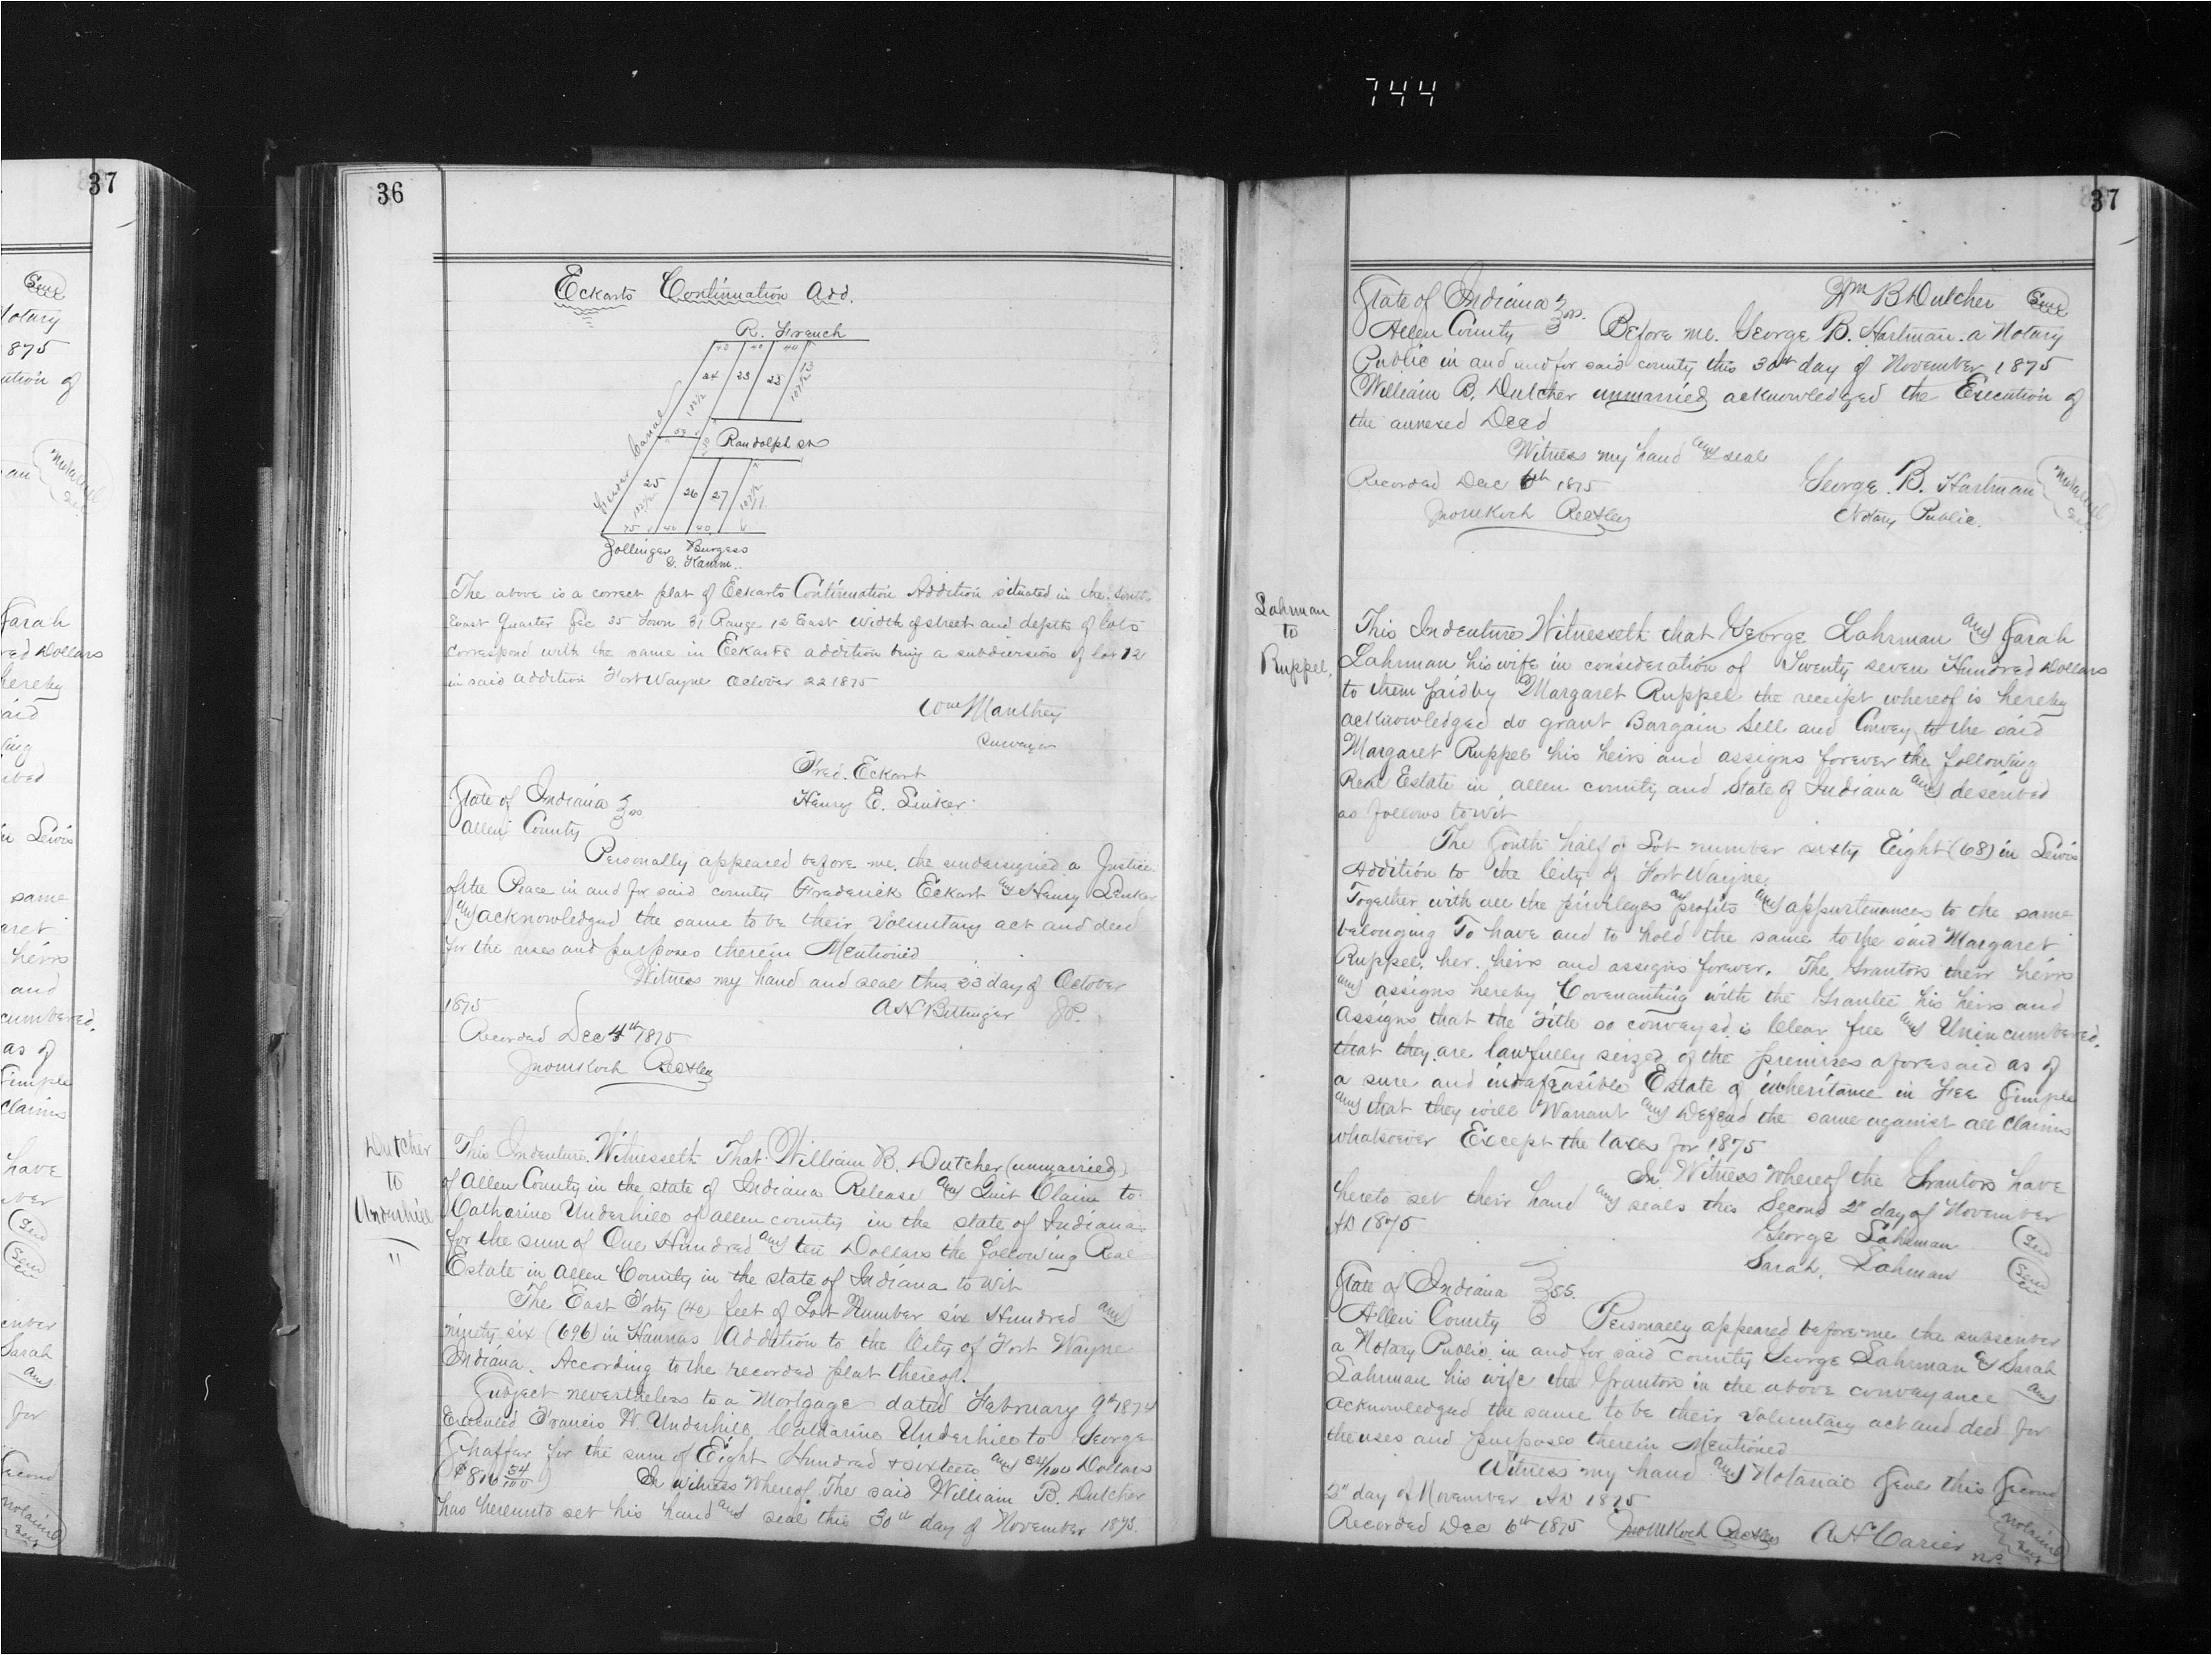 744
37
36
Eckarts Continuation Add.
R. French
40 40
24 23 22
Feeder Canal
132 1/2
Randolph St
25 26 27
75 40 40
Zollinger Burgess
& Hamm.
The above is a correct plat of Eckarts Continuation Addition situated in the South
East Quarter Sec 35 Town 31 Range 12 East width of street and depth of lots
correspond with the same in Eckarts addition being a subdivision of lot 12
in said addition Fort Wayne October 22 1875
Wm Manthey
Surveyor
Fred. Eckart
Henry E. Linker
State of Indiana } ss
Allen County
Personally appeared before me, the undersigned a Justice
of the Peace in and for said county Frederick Eckart & Henry Linker
and acknowledged the same to be their voluntary act and deed
for the uses and purposes therein Mentioned
Witness my hand and seal this 23 day of October
1875
A H Bittinger JP.
Recorded Dec 4th 1875
Jno M Koch Rec
Dutcher
to
Underhill
"
This Indenture Witnesseth That William B. Dutcher (unmarried)
of Allen County in the state of Indiana Release and Quit Claim to
Catharine Underhill of allen county in the state of Indiana
for the sum of One Hundred and ten Dollars the following Real
Estate in Allen County in the state of Indiana to wit
The East Forty (40) feet of Lot Number six Hundred and
ninety six (696) in Hannas Addition to the City of Fort Wayne
Indiana. According to the recorded plat thereof.
Subject nevertheless to a Mortgage dated February 9th 1874
Executed Francis W. Underhill, Catharine Underhill to George
Shaffer for the sum of Eight Hundred & sixteen and 54/100 Dollars
($816 54/100) In witness Whereof The said William B. Dutcher
has hereunto set his hand and seal this 30th day of November 1875.
37
Wm B Dutcher Seal
State of Indiana } ss.
Allen County Before me. George B. Hartman. a Notary
Public in and and for said county this 30th day of November 1875
William B. Dutcher unmarried acknowledged the Execution of
the annexed Deed
Witness my hand and seal
Recorded Dec 6th 1875 George. B. Hartman Notarial Seal
Jno M Koch Rec Notary Public.
Lahrman
to
Ruppel.
This Indenture Witnesseth that George Lahrman and Sarah
Lahrman his wife in consideration of Twenty seven Hundred Dollars
to them paid by Margaret Ruppel the receipt whereof is hereby
acknowledged do grant Bargain Sell and Convey to the said
Margaret Ruppel his heirs and assigns forever the following
Real Estate in allen county and State of Indiana and described
as follows to wit
The South half of Lot number sixty Eight (68) in Lewis
Addition to the City of Fort Wayne.
Together with all the privileges and profits and appurtenances to the same
belonging To have and to hold the same to the said Margaret
Ruppel. her heirs and assigns forever. The Grantors their heirs
and assigns hereby Covenanting with the Grantee his heirs and
Assigns that the Title so conveyed is Clear free and Unincumbered.
that they are lawfully seized of the premises aforesaid as of
a sure and indefeasible Estate of inheritance in Fee Simple
and that they will Warrant and Defend the same against all Claims
whatsoever Except the taxes for 1875
In Witness Whereof the Grantors have
hereto set their hand and seals this Second 2" day of November
AD 1875
George Lahrman Seal
Sarah. Lahrman Seal
State of Indiana } SS.
Allen County Personally appeared before me the subscriber
a Notary Public in and for said County George Lahrman & Sarah
Lahrman his wife the Grantors in the above conveyance and
acknowledged the same to be their voluntary act and deed for
the uses and purposes therein Mentioned
Witness my hand and Notarial Seal this Second
2" day of November AD 1875
Recorded Dec 6th 1875 Jno M Koch Rec A H Carier Notarial Seal
NP.